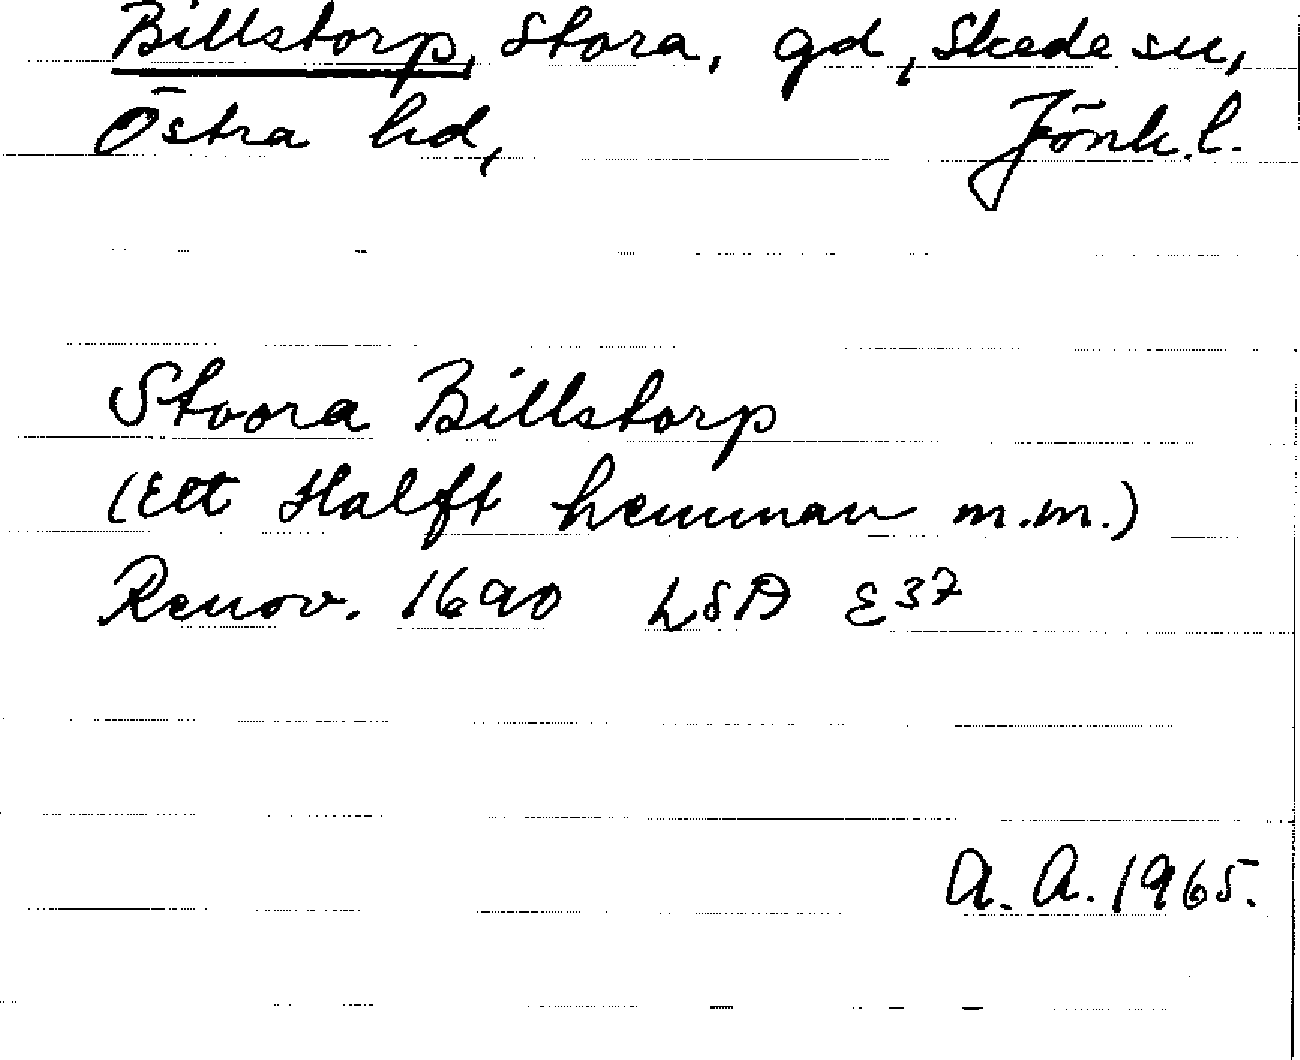 Billstorp, Stora, gd, Skede sn,
Östra hd, Jönk.l.
Stoora Billstorp
(Ett Halft hemman m.m.)
Renov. 1690 LSA E37
A. A. 1965.